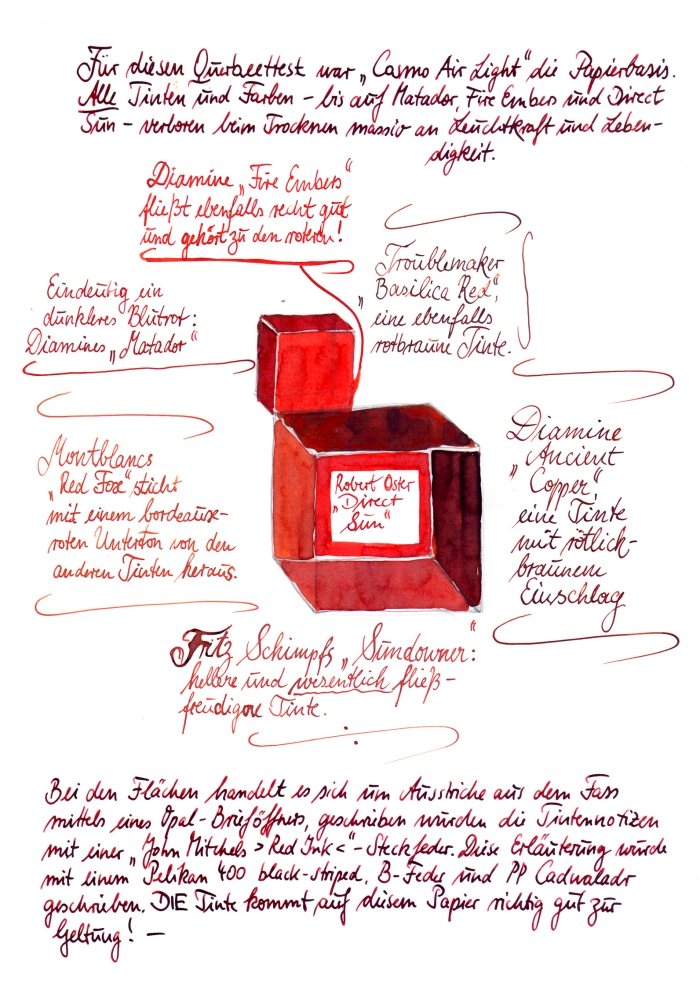 Für diesen Querbeettest war „Cosmo Air Light“ die Papierbasis.
Alle Tinten und Farben – bis auf Matador, Fire Embers und Direct
Sun – verloren beim Trocknen massiv an Leuchtkraft und Leben-
digkeit.
Diamine „Fire Embers“
fließt ebenfalls recht gut
und gehört zu den roteren!
Troublemaker
„Basilica Red“,
eine ebenfalls
rotbraune Tinte.
Eindeutig ein
dunkleres Blutrot:
Diamines „Matador“
Montblancs
„Red Fox“ sticht
mit einem bordeaux-
roten Unterton von den
anderen Tinten heraus.
Robert Oster
„Direct
Sun“
Diamine
„Ancient
Copper“,
eine Tinte
mit rötlich-
braunem
Einschlag
Fritz Schimpfs „Sundowner“:
hellere und wesentlich fließ-
freudigere Tinte.
Bei den Flächen handelt es sich um Ausstriche aus dem Fass
mittels eines Opal-Brieföffners, geschrieben wurden die Tintennotizen
mit einer „John Mitchels > Red Ink <“-Steckfeder. Diese Erläuterung wurde
mit einem Pelikan 400 black-striped, B-Feder und PP Cadwaladr
geschrieben. DIE Tinte kommt auf diesem Papier richtig gut zur
Geltung! —